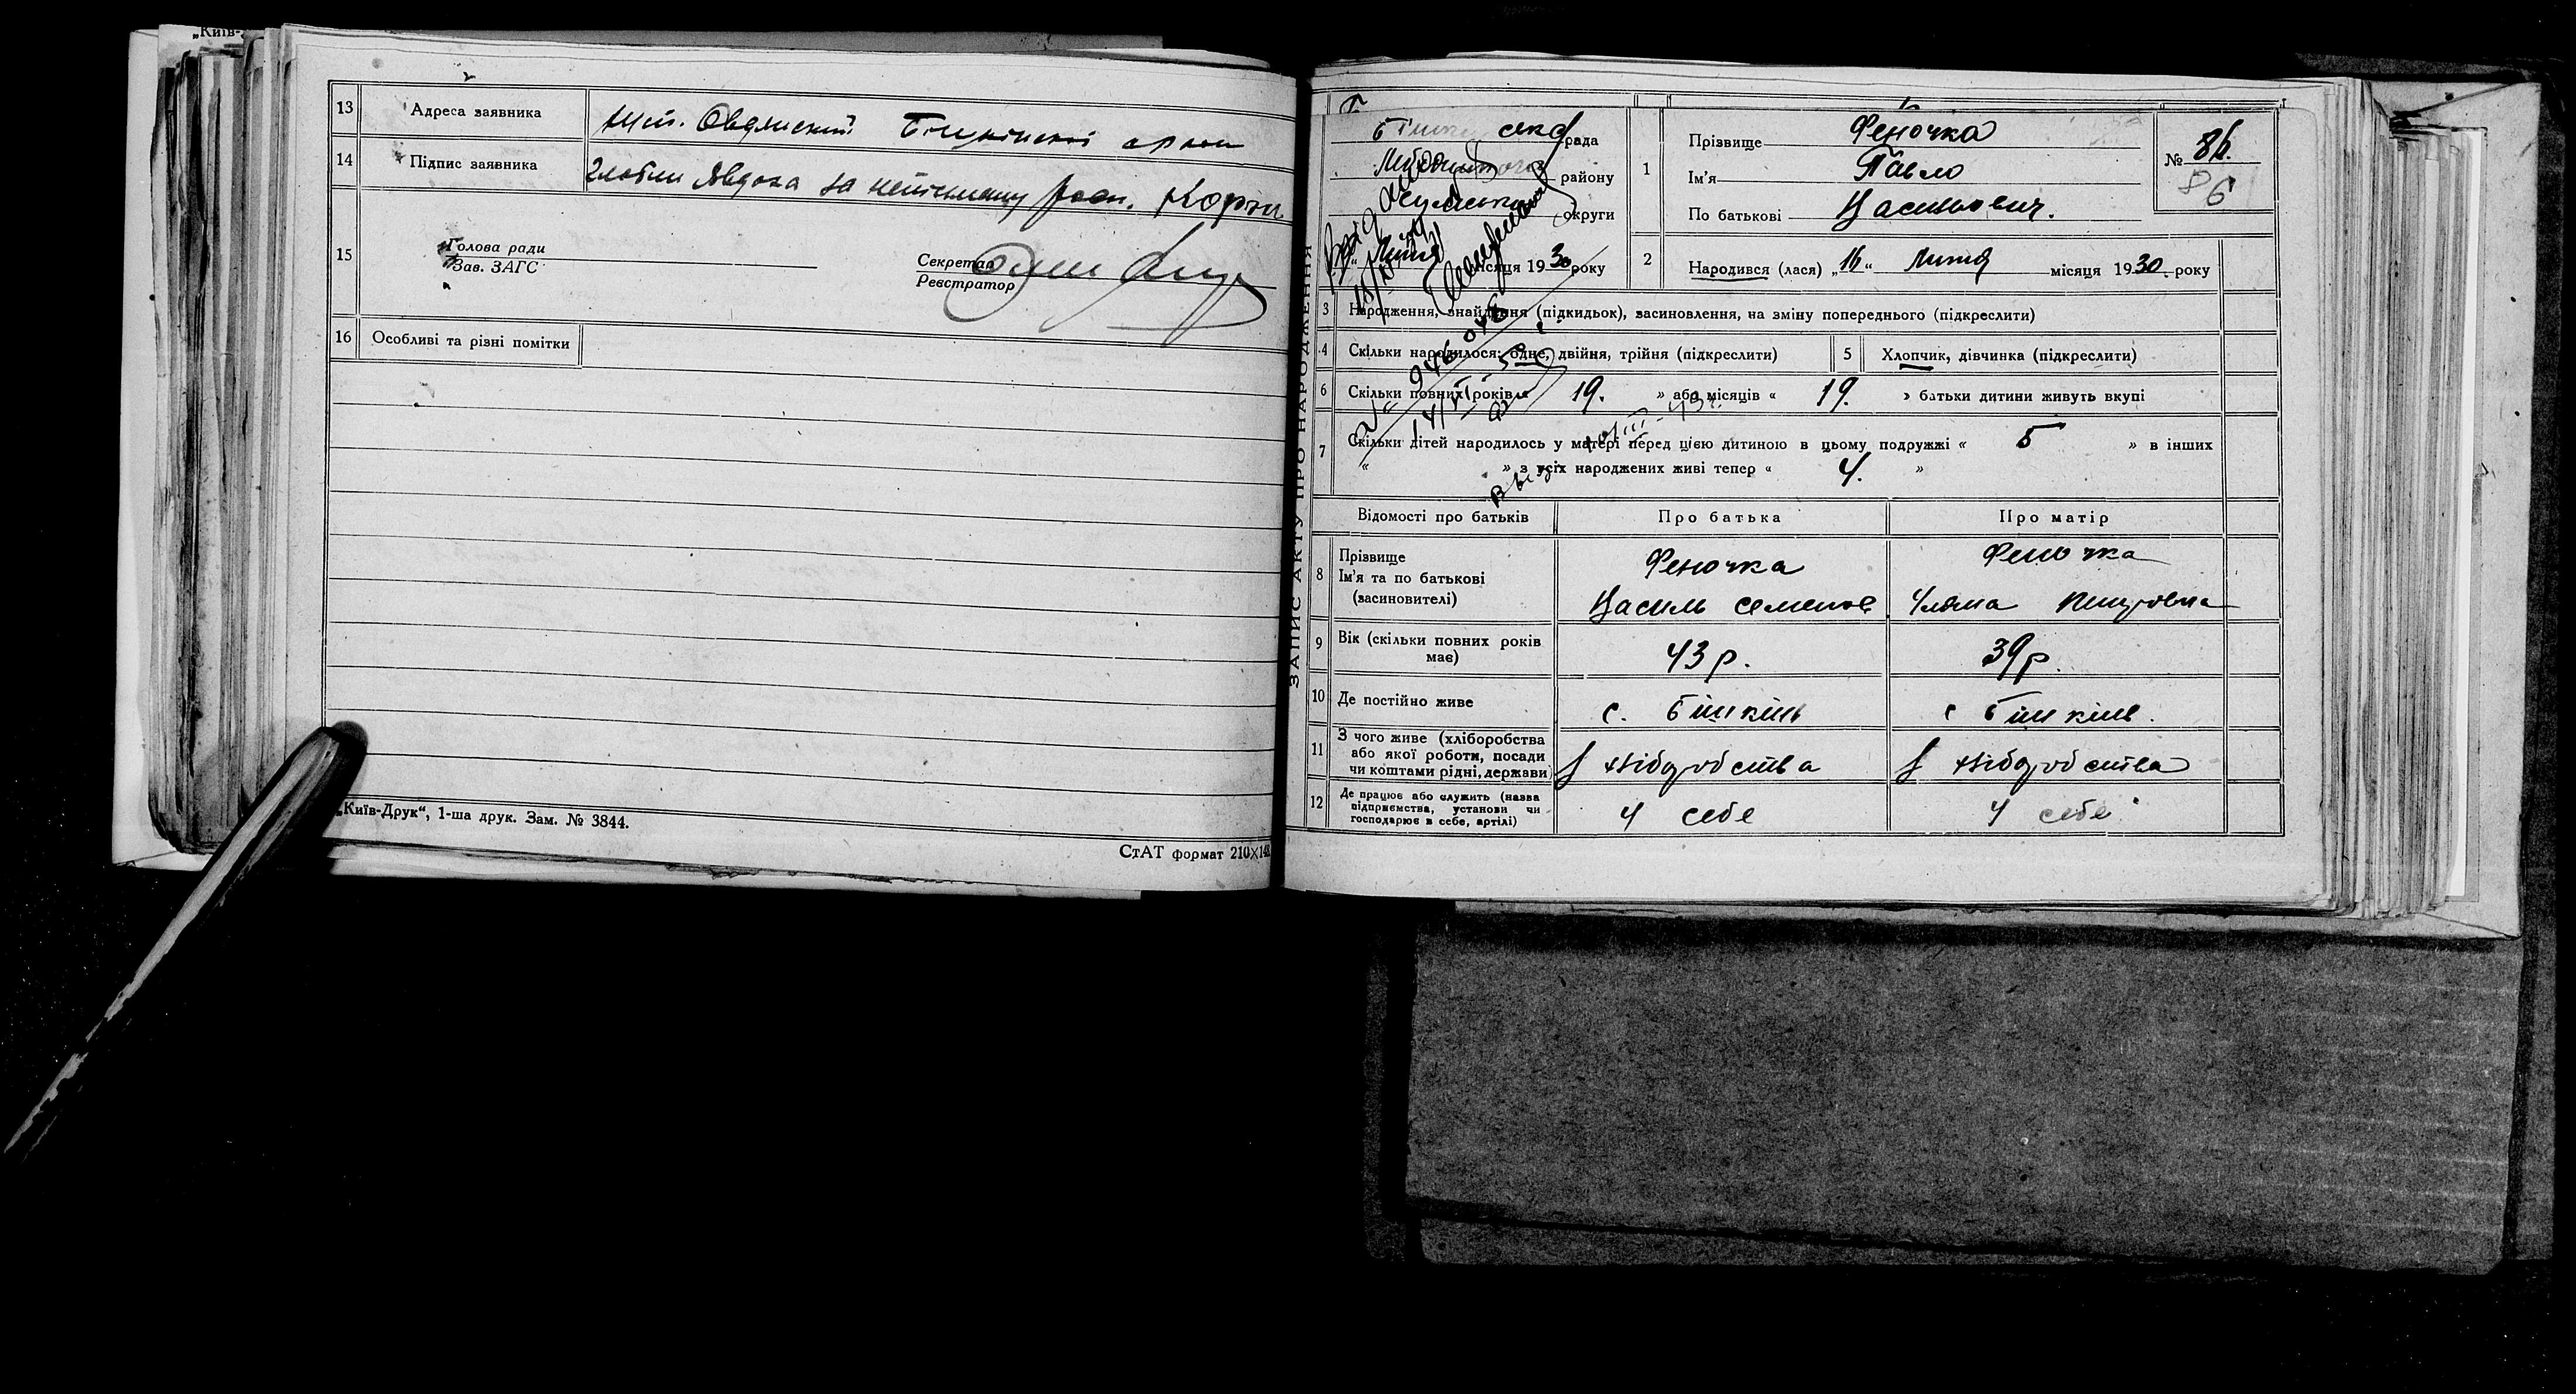 „Київ-
13 Адреса заявника хут. Овдянский Бишкінскі
14 Підпис заявника Явдоха за неписьмену розп. Корж
15 Голова ради
Зав. ЗАГС
Секретар
Реєстратор
16 Особливі та різні помітки
„Київ-Друк“, 1-ша друк. Зам. № 3844.
СтАТ формат 210×148
ЗАПИС АКТУ ПРО НАРОДЖЕННЯ
рада
району
округи
Липня місяця 1930 року
1 Прізвище Феночка
Ім'я Павло
По батькові Васильович.
№ 86.
86
2 Народився (лася) „16“ Липня місяця 1930 року
3 Народження, знайдення (підкидьок), засиновлення, на зміну попереднього (підкреслити)
4 Скільки народилося: одне, двійня, трійня (підкреслити)
5 Хлопчик, дівчинка (підкреслити)
6 Скільки повних років « 19. » або місяців « 19. » батьки дитини живуть вкупі
7 Скільки дітей народилось у матері перед цією дитиною в цьому подружжі « 5 » в інших
« » з усіх народжених живі тепер « 4. »
Відомості про батьків Про батька Про матір
8 Прізвище
Ім'я та по батькові
(засиновителі)
Феночка
Василь Семенов
Феночка
Уляна Петровна
9 Вік (скільки повних років
має)
43 р.
39 р.
10 Де постійно живе с. Бишкінь с Бишкінь.
11 З чого живе (хліборобства
або якої роботи, посади
чи коштами рідні, держави)
З хліборобства
З хліборобства
12 Де працює або служить (назва
підприємства, установи чи
господарює в себе, артілі)
У себе
У себе